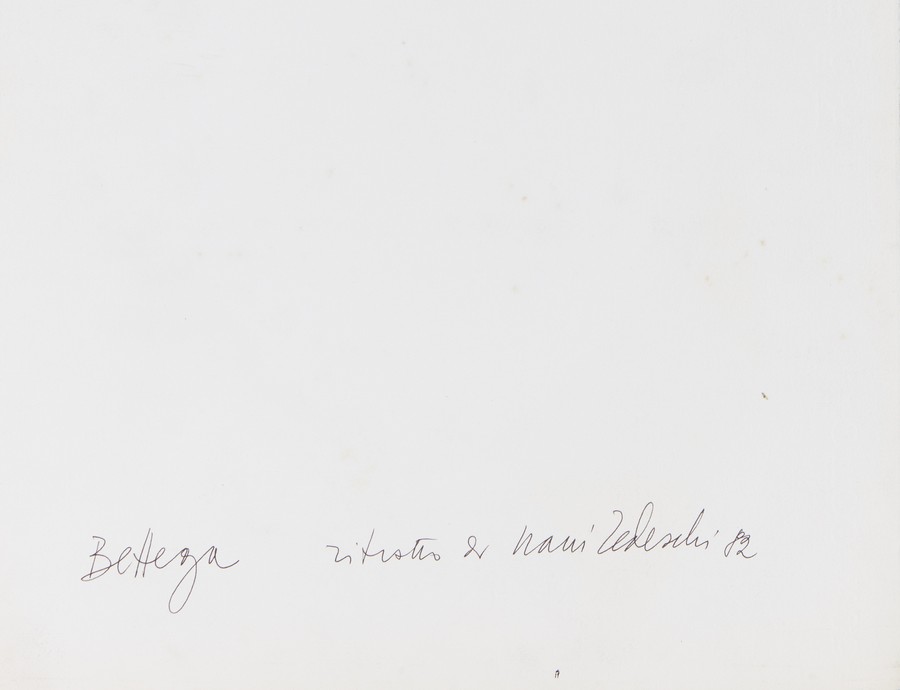 Bettega ritratto di Nani Tedeschi 82